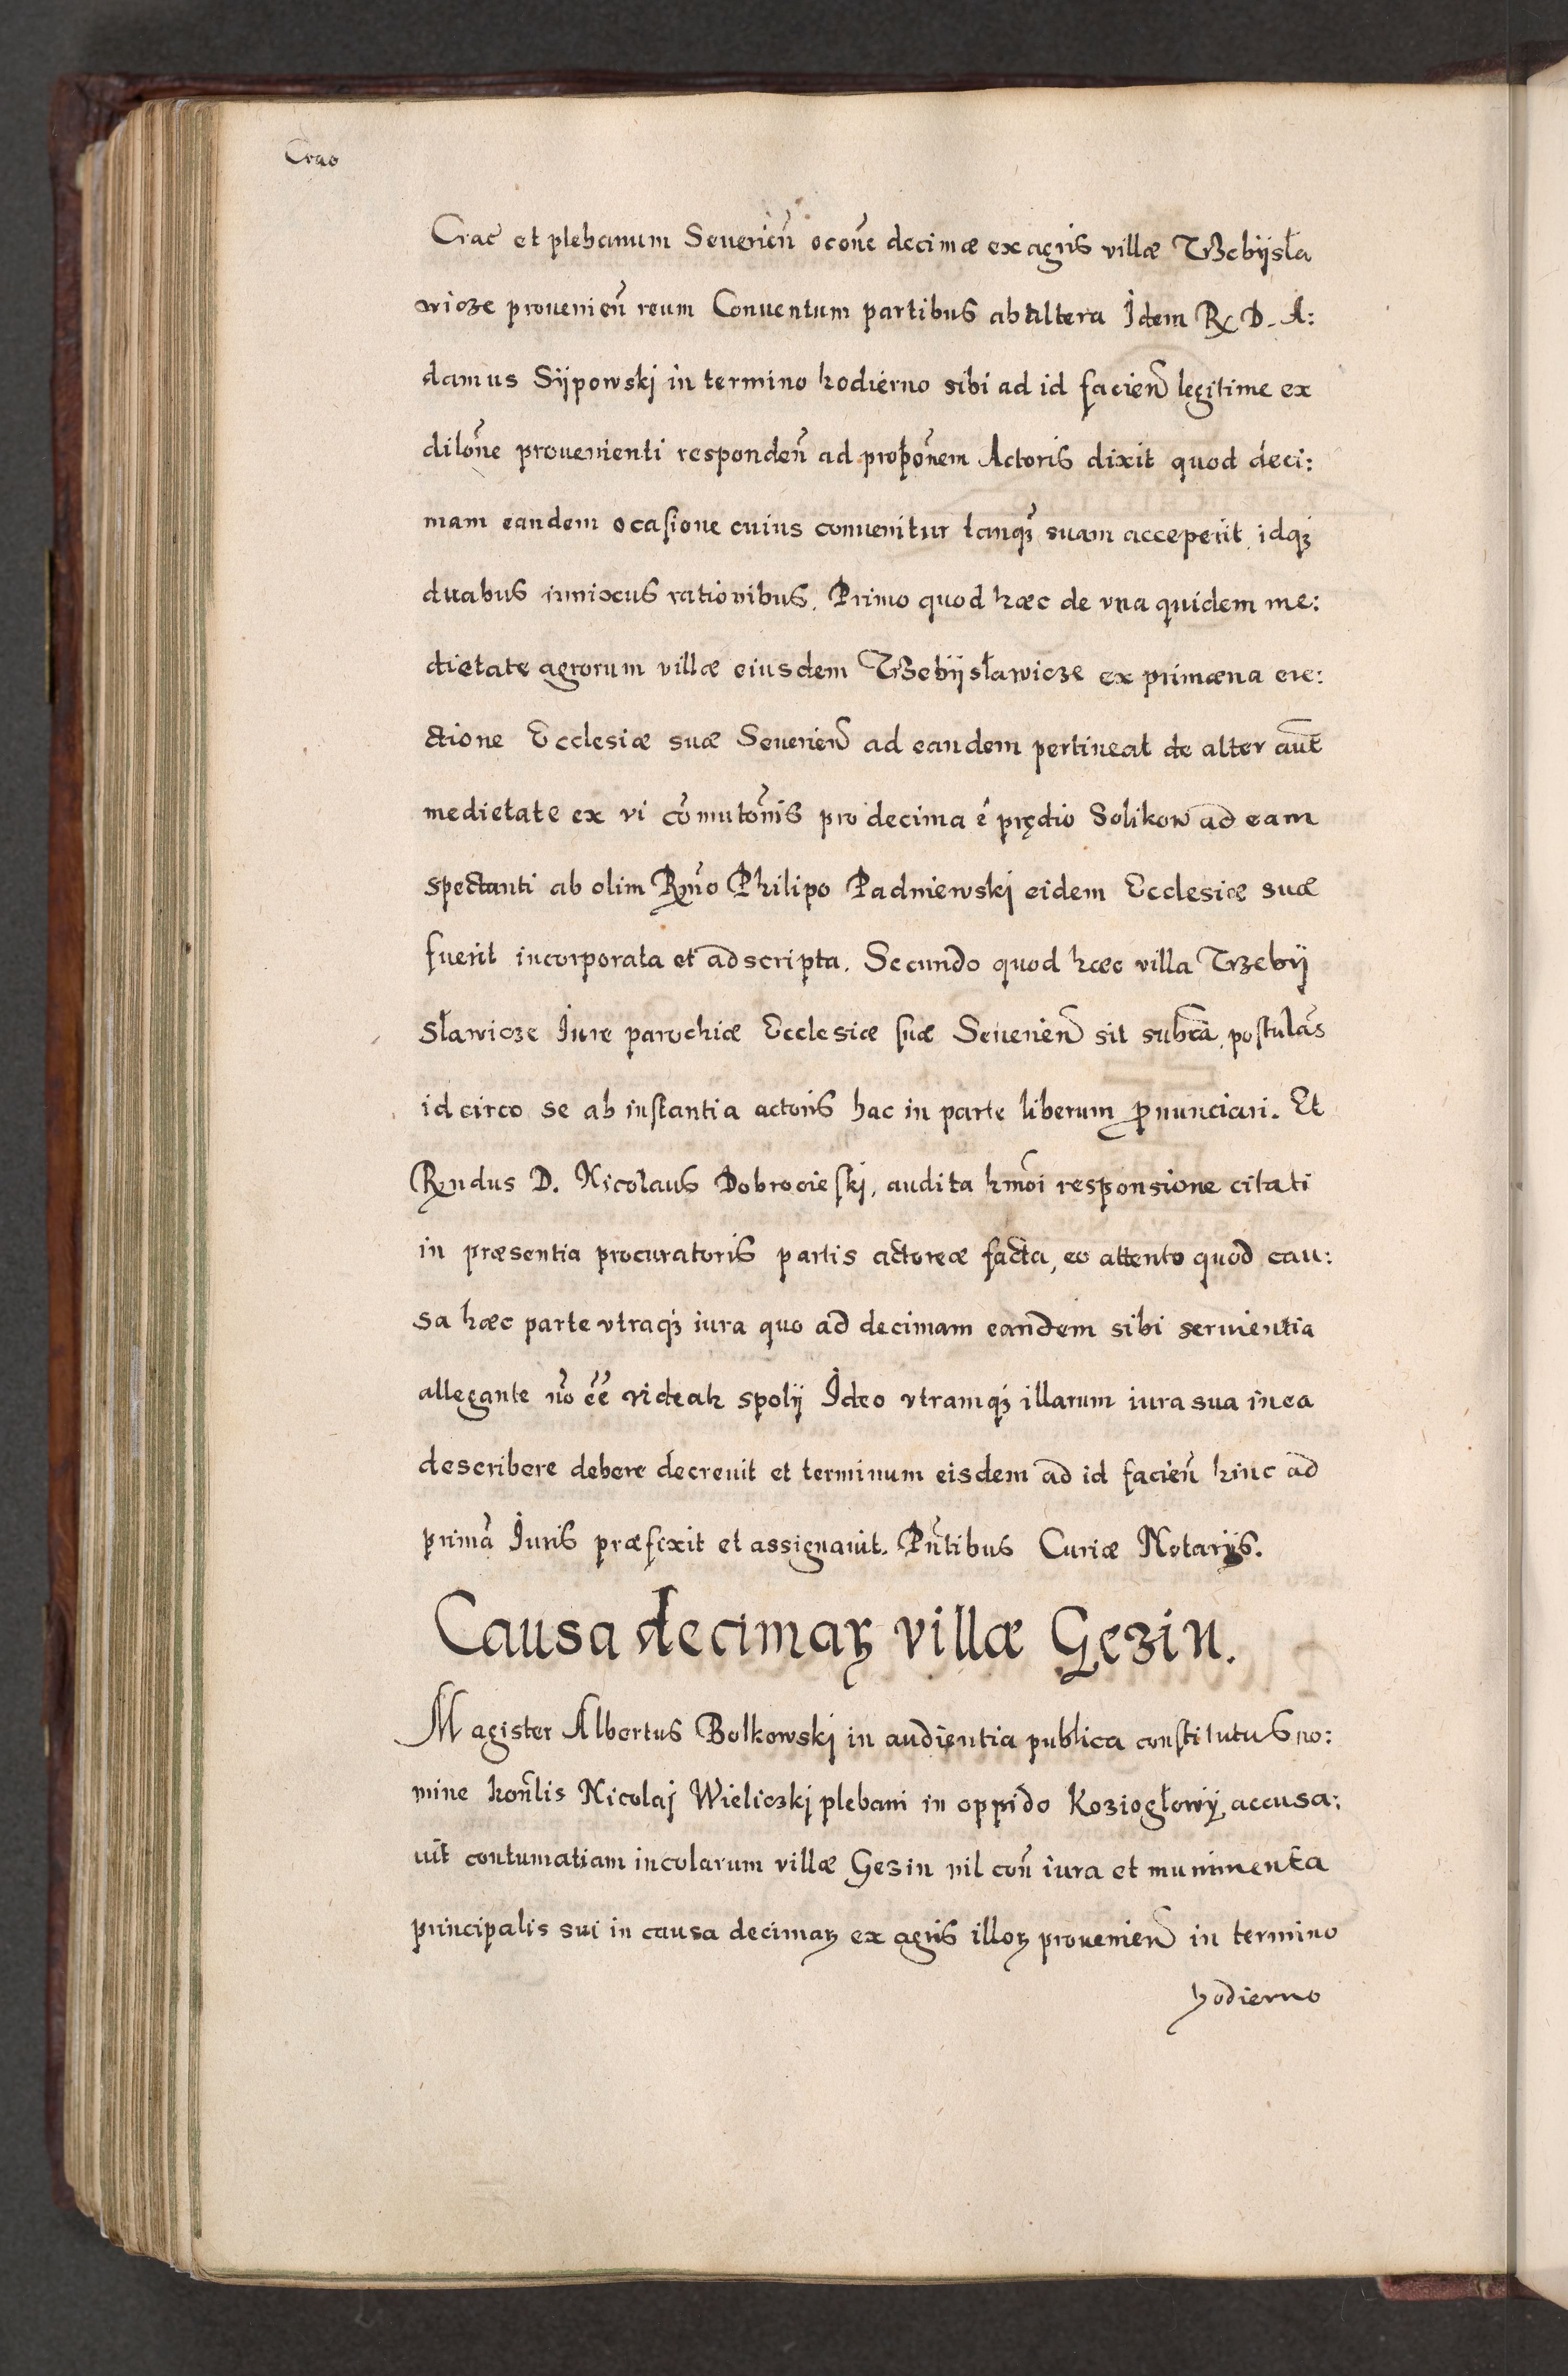 Crac
Crac̃ et plebanum Seuerień oconẽ decimæ ex agris villæ Trzebijsła
wicze provenień reum Conuentum partibus ab altera Idem R. D. A:
damus Sijpowskj in termino hodierno sibi ad id facień legitime ex
dilonẽ prouenienti respondeñ ad propõnem Actoris dixit quod deci:
mam eandem ocasione cuius conuenitur tanqȝ suam acceperit, idqȝ
duabus innixus rationibus. Primo quod hæc de vna quidem me:
dietate agrorum villæ eiusdem Trzebijsławicze ex primæna ere:
ctione Ecclesiæ suæ Seuerień ad eandem pertineat de alter aut̃
medietate ex vi com̃mutõnis pro decima ẽ prędio Solikow ad eam
spectanti ab olim Rm̃o Philipo Padniewskj eidem Ecclesiæ suæ
fuerit incorporata et adscripta. Secundo quod hæc villa Trzebij
sławicze Iure parochiæ Ecclesiæ suæ Seuerień sit subt̃a, postulãs
id circo se ab instantia actoris hac in parte liberum ꝓnunciari. Et
Rndus D. Nicolaus Dobrocieskj, audita hm̃oi responsione citati
in præsentia procuratoris partis actoreæ facta, eo attento quod cau:
sa hæc parte vtraqȝ iura quo ad decimam eandem sibi seruientia
allegante ño ẽẽ videatꝛ spolij Ideo vtramqȝ illarum iura sua in ea
describere debere decreuit et terminum eisdem ad id facień hinc ad
primã Iuris præfixit et assignauit. Pñtibus Curiæ Notarijs.
Causa decimaꝝ villæ Gęzin.
Magister Albertus Bolkowskj in audientia publica constitutus no:
mine hoñlis Nicolaj Wieliczkj plebani in oppido Koziogłowÿ accusa:
uit contumatiam incolarum villæ Gezin nil coñ iura et munimenta
principalis sui in causa decimaꝝ ex agris illoꝝ prouenień in termino
hodierno